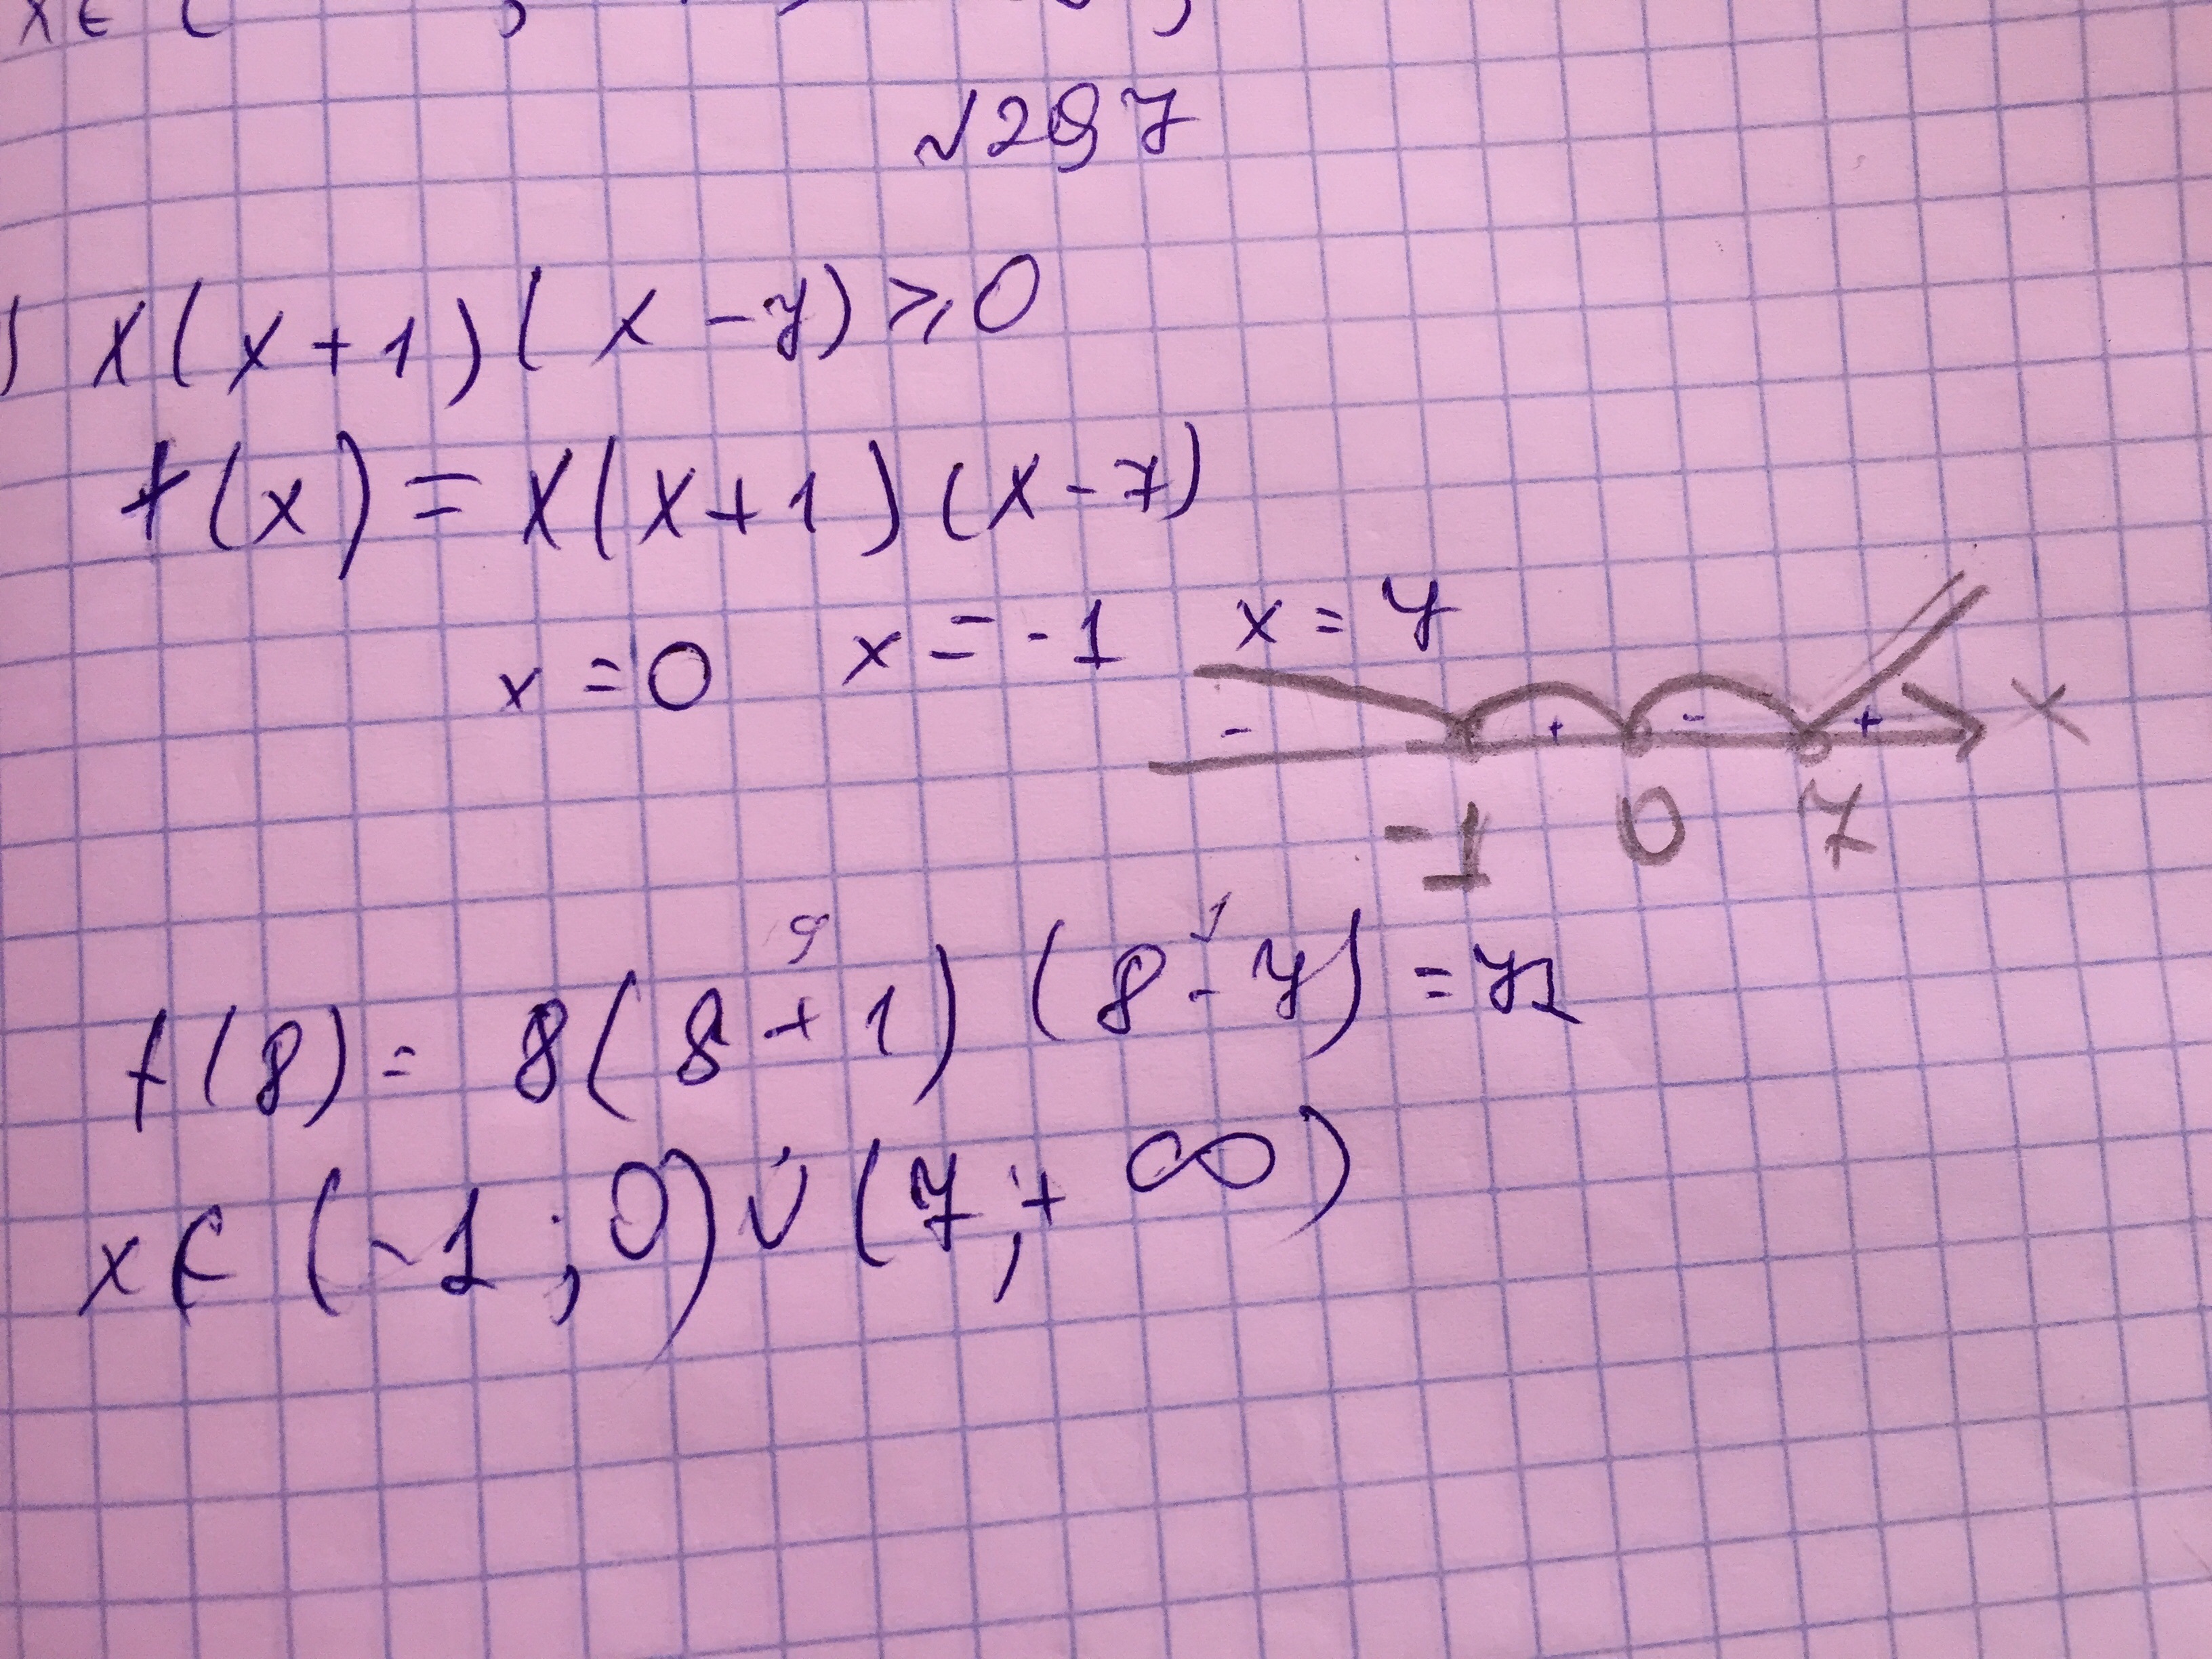 √297
) x(x+1)(x-7)⩾0
f(x)=x(x+1)(x-7)
x=0 x=-1 x=7
- + - + x
-1 0 7
9 1
f(8)= 8(8+1)(8-7)=72
x∈(-1;0)∪(7;+∞)